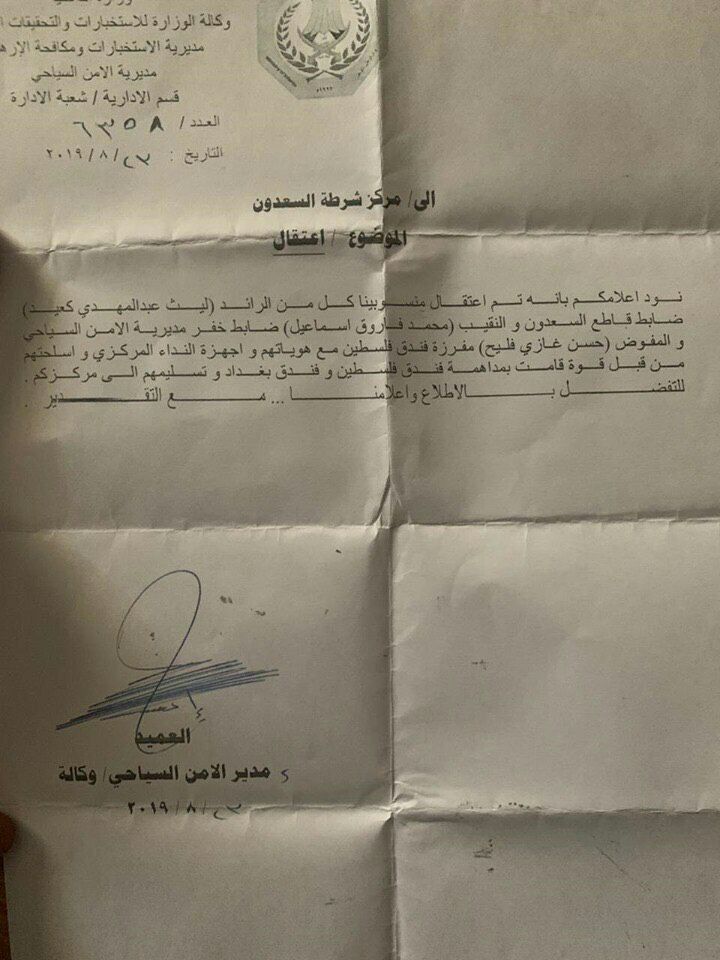 وكالة الوزارة للاستخبارات والتحقيقات
مديرية الاستخبارات ومكافحة الإره
مديرية الامن السياحي
قسم الادارية / شعبة الادارة
العدد / ٦٣٥٨
التاريخ : ٢٣ / ٨ / ٢٠١٩
الى / مركز شرطة السعدون
الموضوع / اعتقال
نود اعلامكم بانه تم اعتقال منسوبينا كل من الرائد (ليث عبدالمهدي كعيد)
ضابط قاطع السعدون و النقيب (محمد فاروق اسماعيل) ضابط خفر مديرية الامن السياحي
و المفوض (حسن غازي فليح) مفرزة فندق فلسطين مع هوياتهم و اجهزة النداء المركزي و اسلحتهم
من قبل قوة قامت بمداهمة فندق فلسطين و فندق بغداد و تسليمهم الى مركزكم .
للتفضل بالاطلاع واعلامنا ... مع التقدير .
العميد
مدير الامن السياحي / وكالة
٢٣ / ٨ / ٢٠١٩